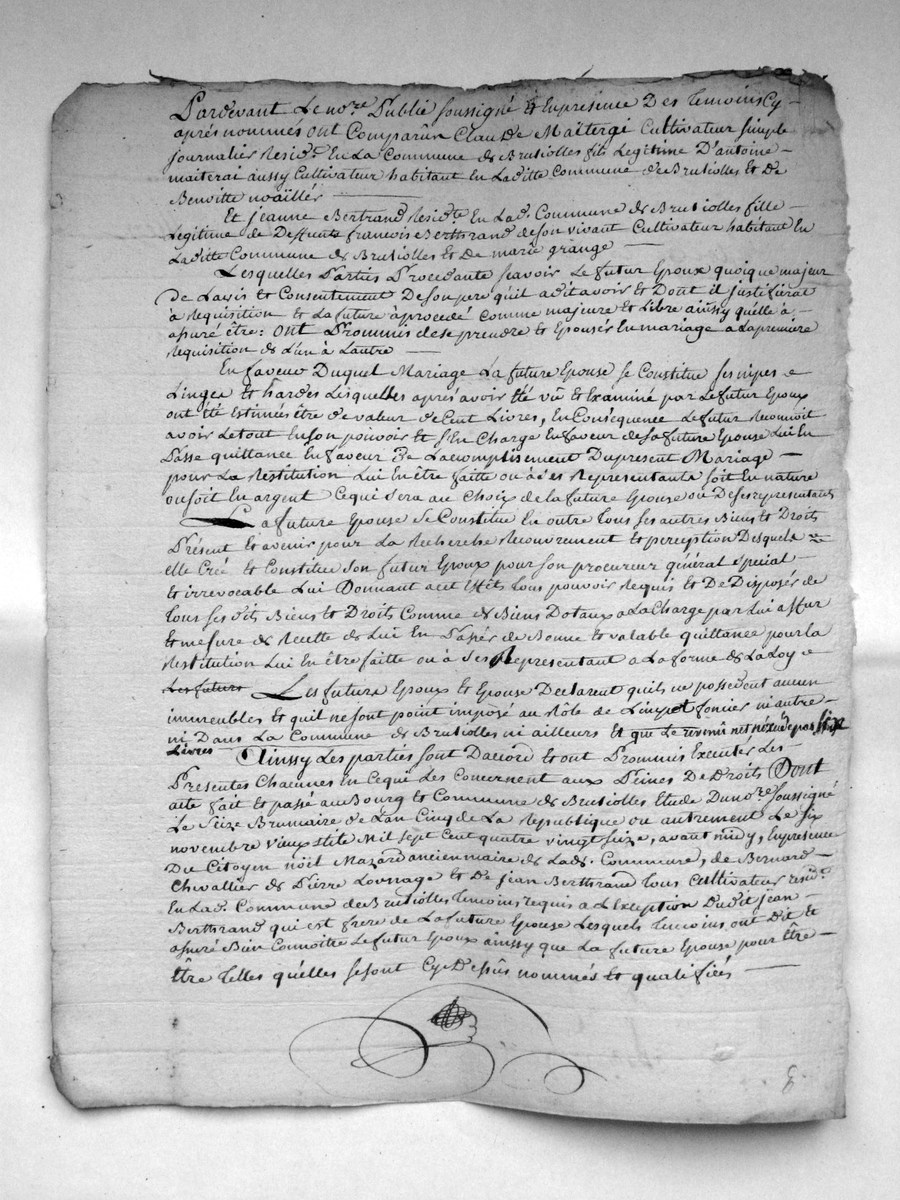 Pardevant Le no.re Public soussigné Et En présence Des temoins Cy-
après nommés ont Comparûn Claude Maitergi Cultivateur simple
journalier Résid.t En La Commune de Brusiolles fils Legitime D'antoine-
maiterai aûssy Cultivateur habitant en Laditte Commune de Brusiolles Et De
Benoitte noäillér
Et jeanne Bertrand Resid.te En Lad. Commune de Brusiolles fille-
Legitime de Deffunts francois Berthrand de son vivant Cultivateur habitant En
Laditte Commune de Brusiolles Et De marie grange
Lesquelles Parties Procedante scavoir Le futur Epoux quoique majeur
De L'avis Et Consentement De son pere qu'il a dit avoir Et Dont il justifierat
à Requisition Et La future à procedé Comme majeure Et Libre aiûssy qu'elle à-
assuré être: ont Prommis de se prendre Et Epouser En mariage a La première
Requisition de L'un à L'autre
En faveur Duquel Mariage La future Epouse se Constitue ses nipes
Linges Et hardes Lesquelles après avoir Eté vû Et Examiné par Le futur Epoux
ont été Estimés être de valeur de Cent Livres, En Conséquence Le futur Reconnoit
avoir Le tout En son pouvoir Et s'En Charge En faveur de sa future Epouse Lui En
Passe quittance En faveur De L'acomplissement Du present Mariage-
pour La Restitution Lui En être faitte ou à ses Representants soit En nature
ou soit En argent Ce qui sera au Choix de La future Epouse ou De ses representants
La future Epouse se Constitue En outre tous ses autres Biens Et Droits
Présent Et avenir pour La Recherche Recouvrement Et perception Desquels
elle Créé Et Constitue son futur Epoux pour son procureur général spécial
Et irrevocable Lui Donnant a cet Effèt tous pouvoir Requis Et De Disposér de
tous ses dits Biens Et Droits Comme de Biens Dotaux a La Charge par Lui
Et mesure de Recette de Lui En Passér de Bonne Et valable quittance pour La
Restitution Lui En être faitte ou à ses Representant a La forme de La Loy
Les futurs Les futurs Epoux Et Epouse Declarent qu'ils ne possedent aucun
immeubles Et qu'il ne sont point imposé au Rôle de L'impot foncier ni autre-
ni Dans La Commune de Brusiolles ni ailleurs Et que Le revenir net n'excede pas six
Livres Aiinsy Les parties sont D'acord Et ont Prommis Executér Les
Presentes Chacunes En Ce qui Les Concernent aux Peines De Droits Dont
acte fait Et passé au Bourg et Commune de Brusiolles Etude Du no.re soussigné
Le seize Brumaire de L'an Cinq de La Republique ou autrement Le six
novembre vieux stile Mil sept Cent quatre vingt seize, avant midy, En presence
Du Citoyen nöil Mazard ancien maire de Lad. Commune, de Bernard-
Chevallier de Pierre Et De jean Berthrand tous Cultivateur resid.t
En Lad. Commune de Brusiolles temoins requis a L'Exception Dudit jean-
Berthrand qui est frere de La future Epouse Lesquels temoins ont Dit Et
assuré Bien Connoitre Le futur Epoux aiûssy que La future Epouse pour être-
être telles qu'elles se sont Cy Dessûs nommés Et qualifiées